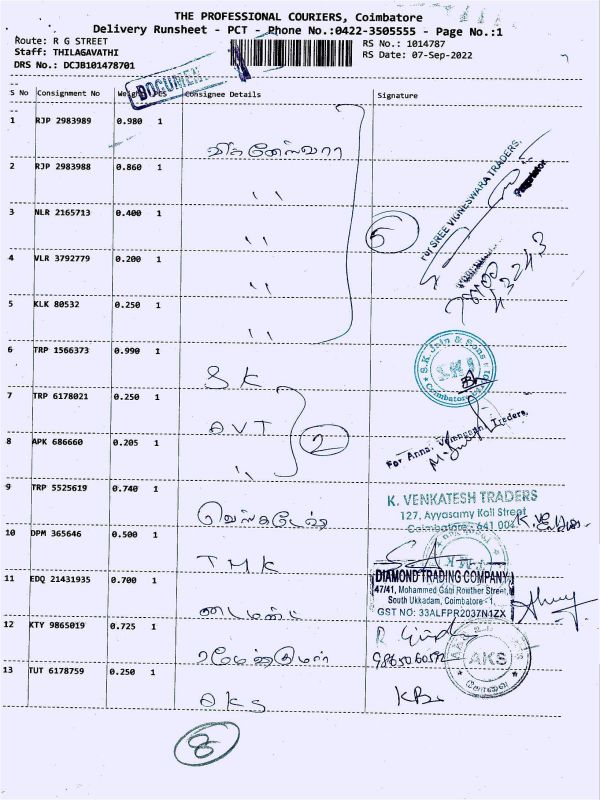 THE PROFESSIONAL COURIERS, Coimbatore
Delivery Runsheet - PCT - Phone No.:0422-3505555 - Page No.:1
Route: R G STREET
RS No.: 1014787
Staff: THILAGAVATHI
RS Date: 07-Sep-2022
DRS No.: DCJB101478701
DOCUMEN
S No Consignment No Weight Pcs Consignee Details Signature
1 RJP 2983989 0.980 1
விக்னேஸ்வரா
For SREE VIGNESWARA TRADERS,
Proprietor
2 RJP 2983988 0.860 1
"
3 NLR 2165713 0.400 1
"
5
4 VLR 3792779 0.200 1
"
5 KLK 80532 0.250 1
"
6 TRP 1566373 0.990 1
SK
S.K. Jain & Sons
S.K.J
Coimbatore
7 TRP 6178021 0.250 1
AVT
2
8 APK 686660 0.205 1
"
For Anna Traders,
9 TRP 5525619 0.740 1
வெங்கடேஷ்
K. VENKATESH TRADERS
127, Ayyasamy Koil Street
Coimbatore - 641 001
10 DPM 365646 0.500 1
TMK
11 EDQ 21431935 0.700 1
டைமண்ட்
DIAMOND TRADING COMPANY
47/41, Mohammed Gani Rowther Street,
South Ukkadam, Coimbatore -1.
GST NO: 33ALFPR2037N1ZX
12 KTY 9865019 0.725 1
ரமேஷ்குமார்
9865060592
13 TUT 6178759 0.250 1
AKS
AKS
கோவை
8